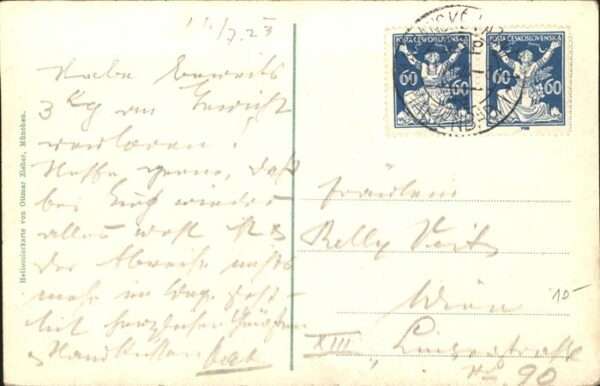 11./7.23
Habe bereits
3 Kg an Gewicht
verloren!
Hoffe gerne, daß
bei Euch wieder
alles wohl ist &
der Abreise nichts
mehr im Wege steht
Mit herzlichen Grüßen
& Handküssen
Heliocolorkarte von Ottmar Zieher, München.
POŠTA ČESKOSLOVENSKÁ
60 60
POŠTA ČESKOSLOVENSKÁ
60 60
Fräulein
Nelly Veit
Wien
XIII Linzerstraße
No 90
10-